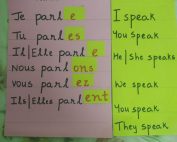 Je parl e
Tu parl es
Il|Elle parl e
Nous parl ons
vous parl ez
Ils|Elles parl ent
I speak
You speak
He|she speaks
We speak
You speak
They speak